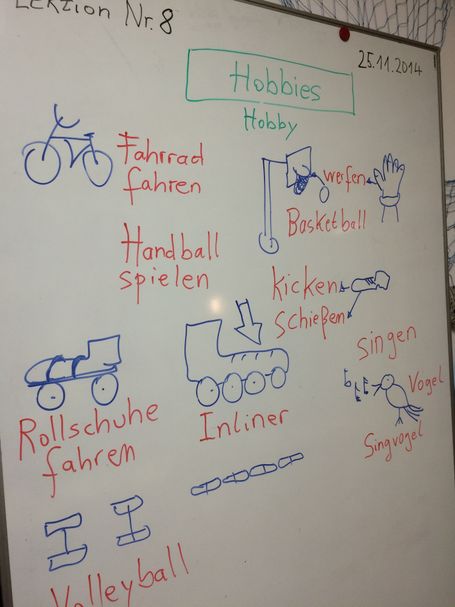 Lektion Nr. 8
25.11.2014
Hobbies
Hobby
Fahrrad
fahren
werfen
Basketball
Handball
spielen
kicken
schießen
singen
Vogel
Singvogel
Rollschuhe
fahren
Inliner
Volleyball